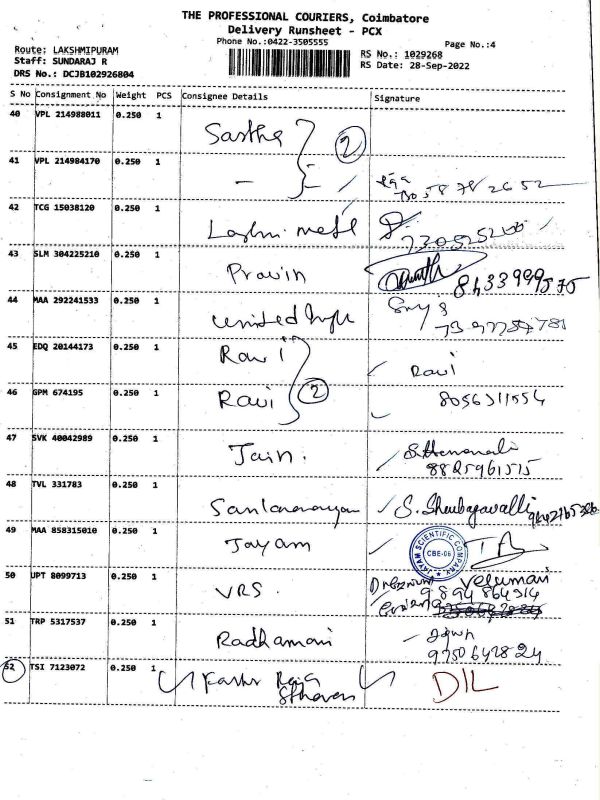 THE PROFESSIONAL COURIERS, Coimbatore
Delivery Runsheet - PCX
Phone No.:0422-3505555
Page No.:4
Route: LAKSHMIPURAM
RS No.: 1029268
Staff: SUNDARAJ R
RS Date: 28-Sep-2022
DRS No.: DCJB102926804
S No Consignment No Weight PCS Consignee Details Signature
40 VPL 214988011 0.250 1 Sastha
2
41 VPL 214984170 0.250 1 -
42 TCG 15038120 0.250 1
43 SLM 304225210 0.250 1 Pravin
8433999575
44 MAA 292241533 0.250 1 United
45 EDQ 20144173 0.250 1 Ravi Ravi
46 GPM 674195 0.250 1 Ravi 2 8056311554
47 SVK 40042989 0.250 1 Jain.
8825961515
48 TVL 331783 0.250 1 S. Shenbagavalli
49 MAA 858315010 0.250 1 Jayam JAYAM SCIENTIFIC COMPANY CBE-06
50 UPT 8099713 0.250 1 VRS. Velumani
9894864314
51 TRP 5317537 0.250 1 Radhamani
9750642824
52 TSI 7123072 0.250 1 DIL